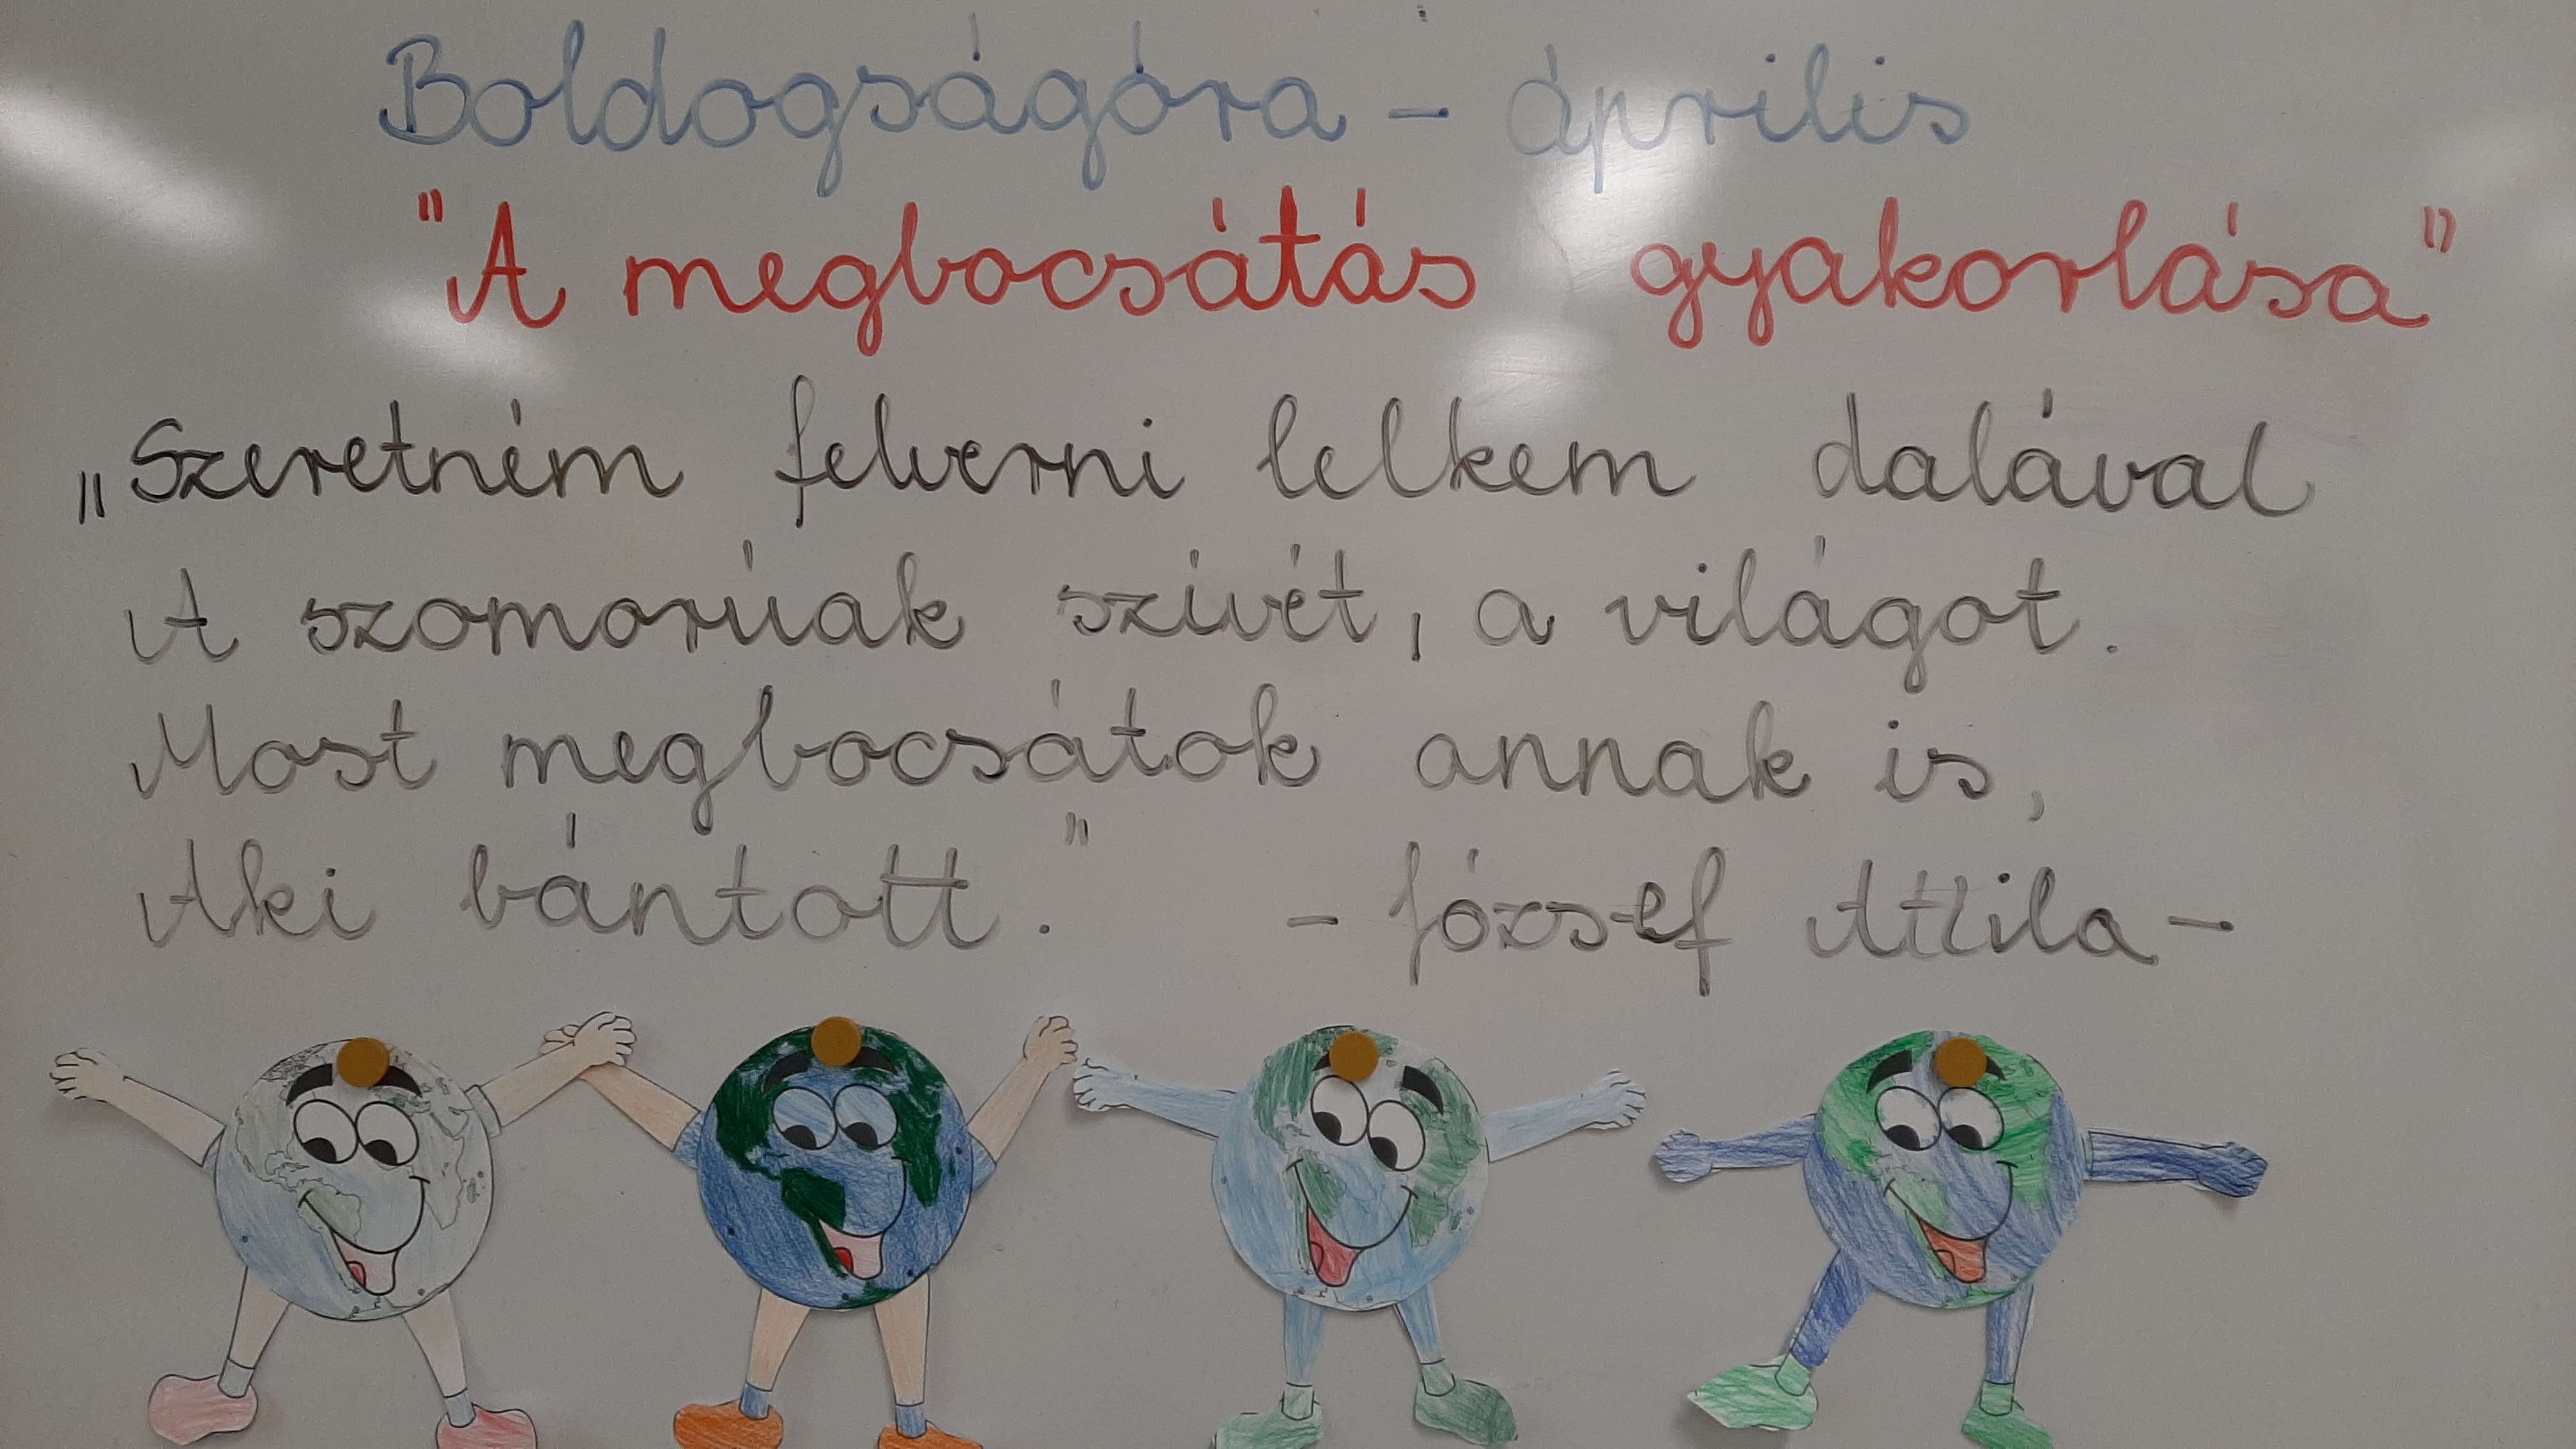 Boldogságóra - április
"A megbocsátás gyakorlása"
„Szeretném felverni lelkem dalával
A szomorúak szívét, a világot.
Most megbocsátok annak is,
Aki bántott."
- József Attila -